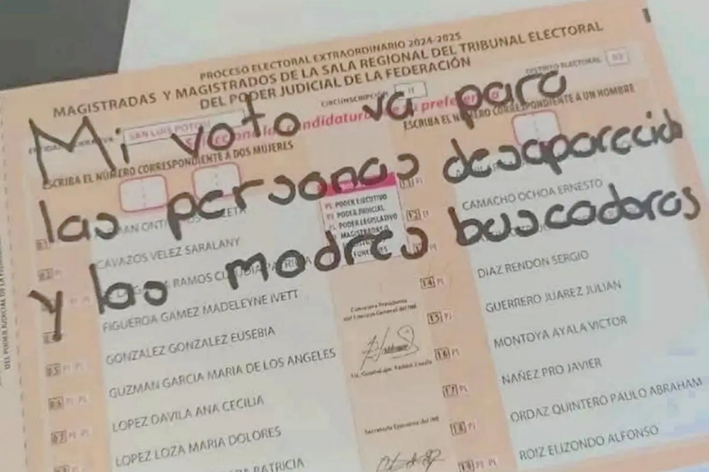 PROCESO ELECTORAL EXTRAORDINARIO 2024-2025
MAGISTRADAS Y MAGISTRADOS DE LA SALA REGIONAL DEL TRIBUNAL ELECTORAL
DEL PODER JUDICIAL DE LA FEDERACIÓN
CIRCUNSCRIPCIÓN II
DISTRITO ELECTORAL 03
SAN LUIS POTOSÍ
ESCRIBA EL NÚMERO CORRESPONDIENTE A DOS MUJERES
ESCRIBA EL NÚMERO CORRESPONDIENTE A UN HOMBRE
Mi voto va para
las personas desaparecidas
y las madres buscadoras
CAVAZOS VELEZ SARALANY
RAMOS CLAUDIA PATRICIA
FIGUEROA GAMEZ MADELEYNE IVETT
GONZALEZ GONZALEZ EUSEBIA
GUZMAN GARCIA MARIA DE LOS ANGELES
LOPEZ DAVILA ANA CECILIA
LOPEZ LOZA MARIA DOLORES
PATRICIA
PE PODER EJECUTIVO
PJ PODER JUDICIAL
PL PODER LEGISLATIVO
CAMACHO OCHOA ERNESTO
DIAZ RENDON SERGIO
14 GUERRERO JUAREZ JULIAN
15 MONTOYA AYALA VICTOR
16 NAÑEZ PRO JAVIER
17 ORDAZ QUINTERO PAULO ABRAHAM
18 ROIZ ELIZONDO ALFONSO
Consejera Presidenta
del Consejo General del INE
Secretaria Ejecutiva del INE